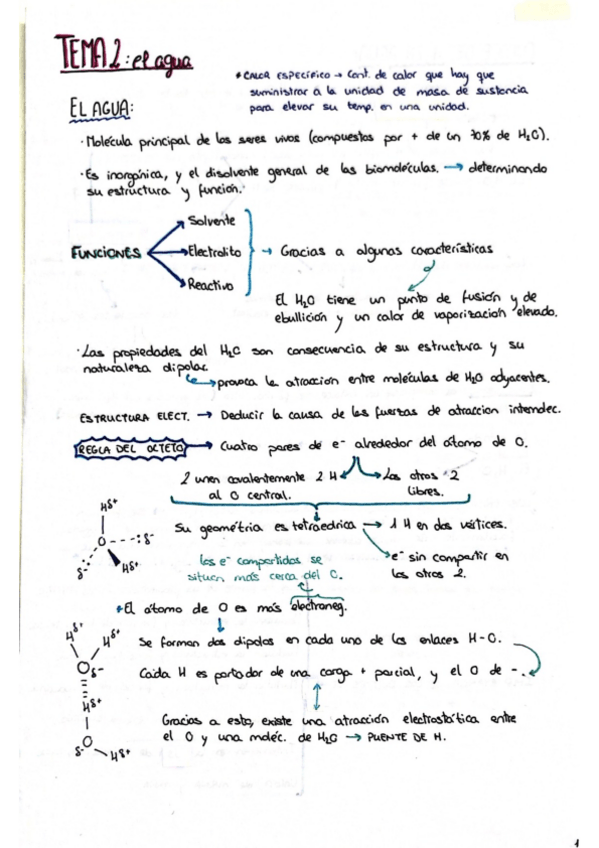 TEMA 2: el agua
* CALOR ESPECÍFICO → Cant. de calor que hay que
suministrar a la unidad de masa de sustancia
para elevar su temp. en una unidad.
EL AGUA:
· Molécula principal de los seres vivos (compuestos por + de un 70% de H₂O).
· Es inorgánica, y el disolvente general de las biomoléculas. → determinando
su estructura y función.
FUNCIONES
Solvente
Electrolito → Gracias a algunas características
Reactivo
El H₂O tiene un punto de fusión y de
ebullición y un calor de vaporización elevado.
· Las propiedades del H₂O son consecuencia de su estructura y su
naturaleza dipolar
→ provoca la atracción entre moléculas de H₂O adyacentes.
ESTRUCTURA ELECT. → Deducir la causa de las fuerzas de atracción intermolec.
REGLA DEL OCTETO → Cuatro pares de e⁻ alrededor del átomo de O.
2 unen covalentemente 2 H
al O central.
Los otros 2
libres.
Su geometría es tetraédrica → 1 H en dos vértices.
e⁻ sin compartir en
los otros 2.
los e⁻ compartidos se
situan más cerca del O.
Hδ⁺
O
δ⁻
δ⁻
Hδ⁺
* El átomo de O es más electroneg.
Se forman dos dipolos en cada uno de los enlaces H-O.
Cada H es portador de una carga + parcial, y el O de -.
Gracias a esto, existe una atracción electrostática entre
el O y una moléc. de H₂O → PUENTE DE H.
Hδ⁺
Hδ⁺
Oδ⁻
Hδ⁺
O
δ⁻
Hδ⁺
1